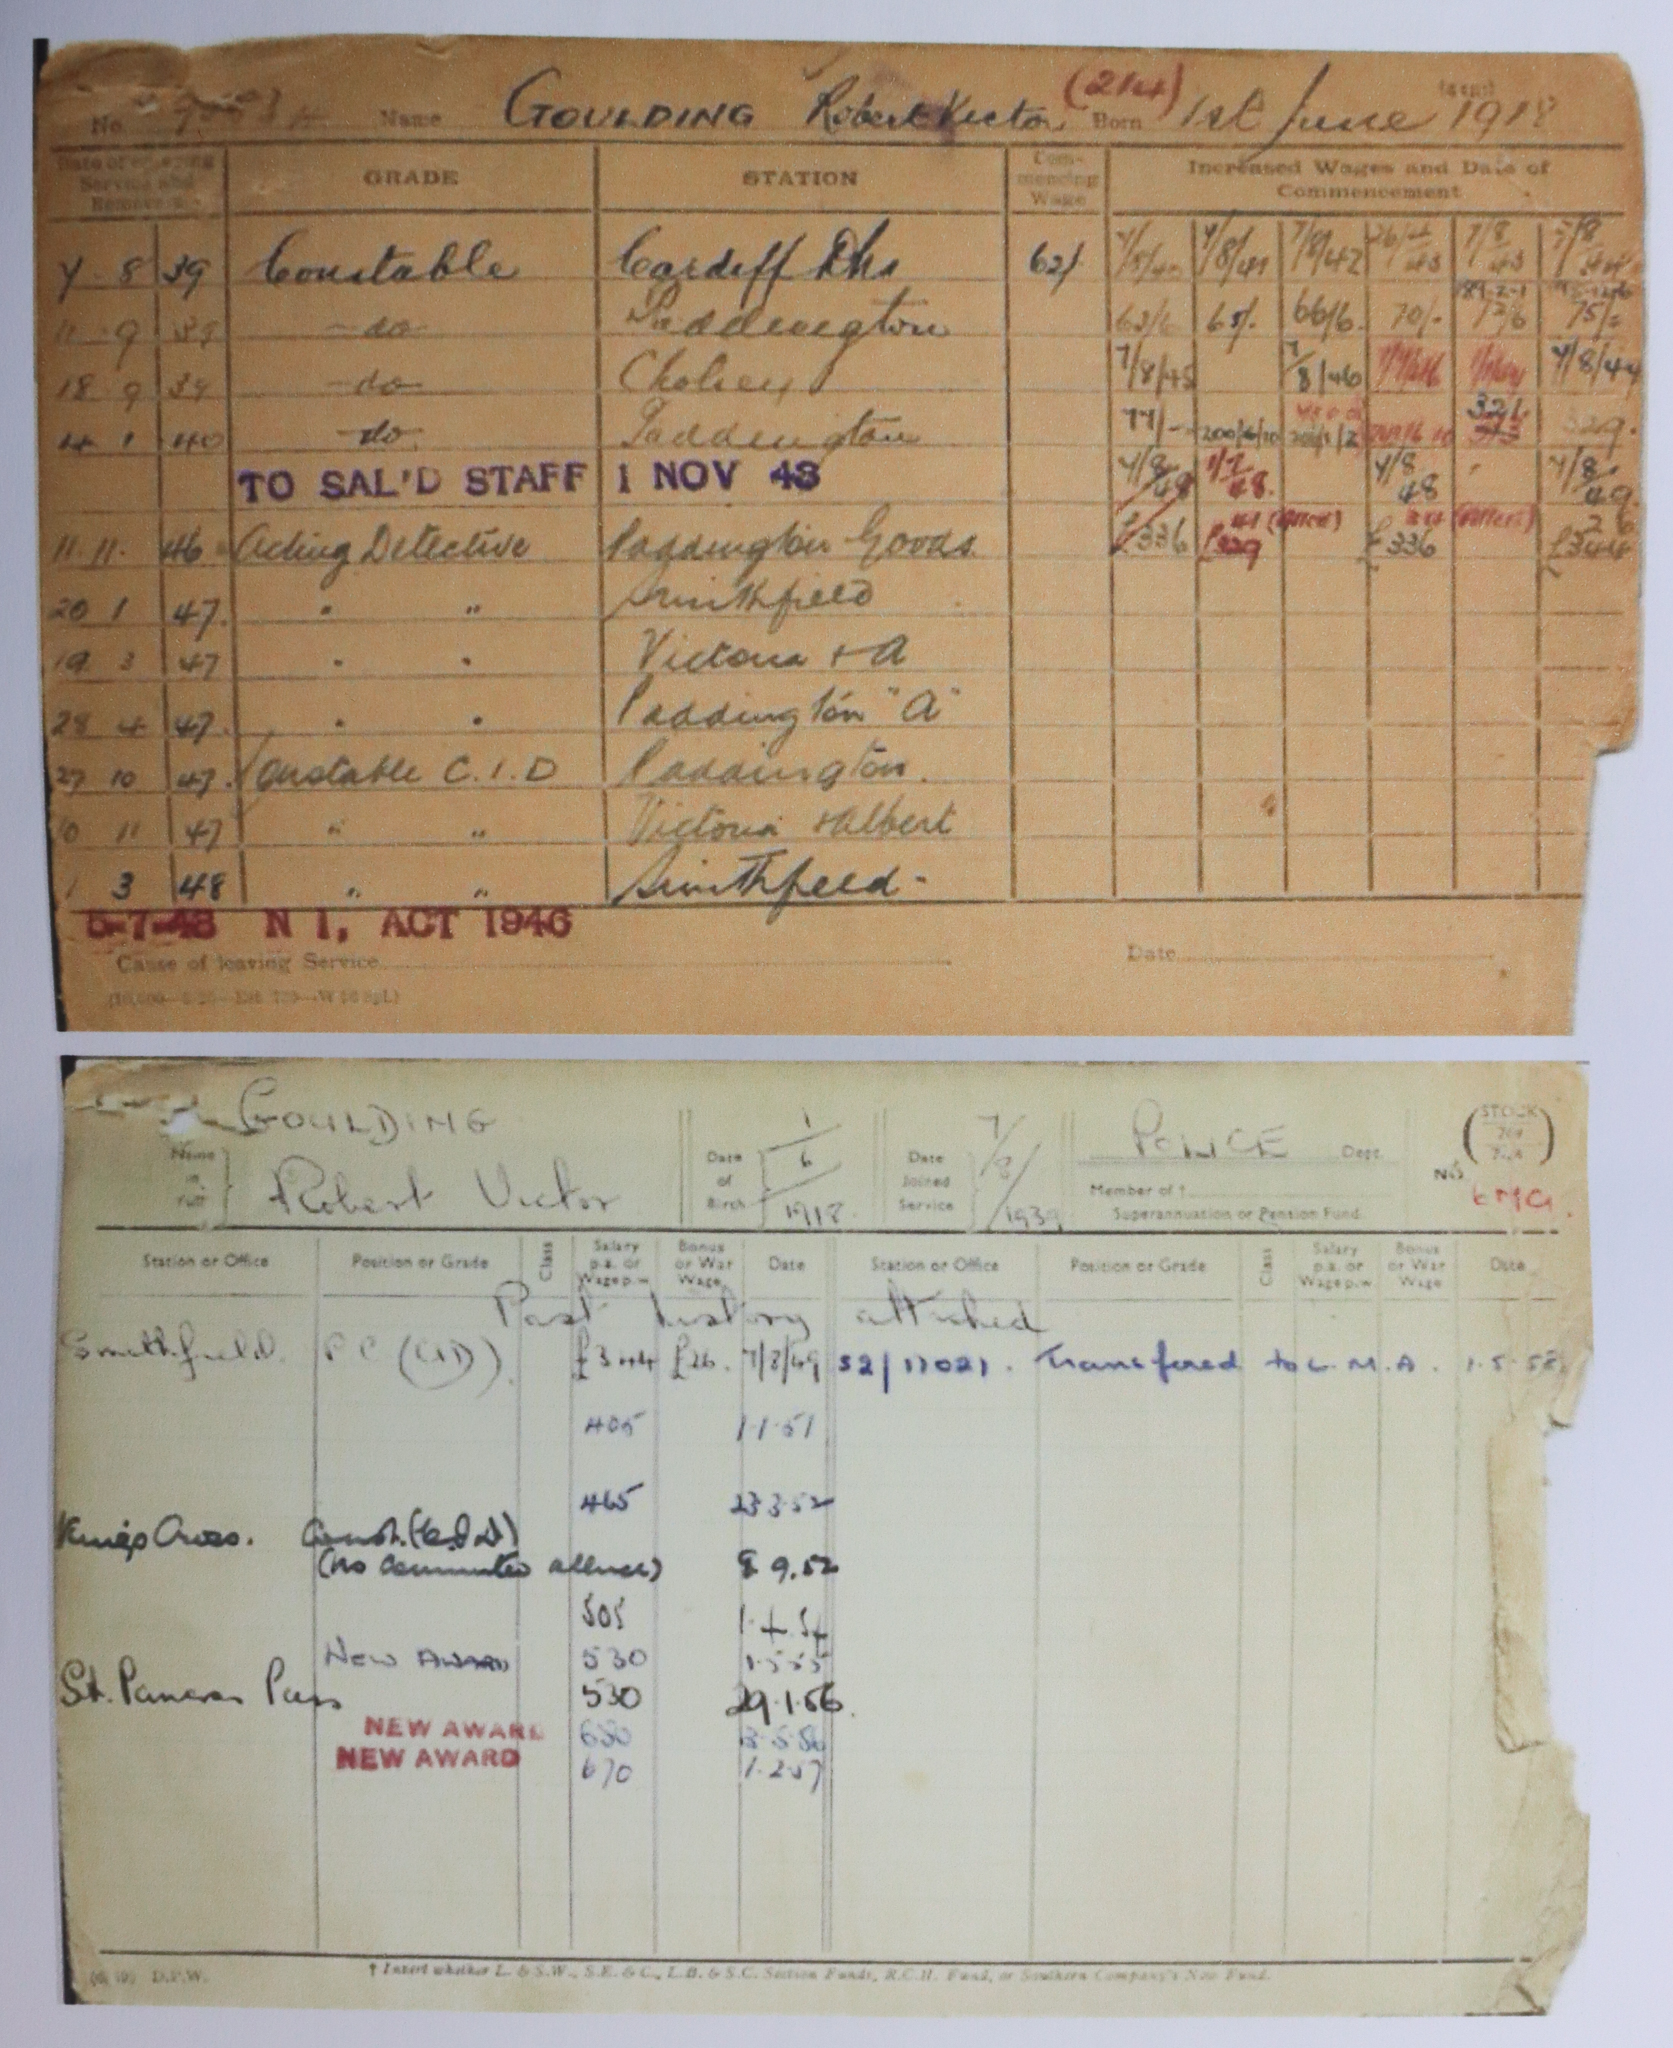 No. Name GOULDING Robert Victor (214) Born 1st June 1918
Service and
GRADE STATION Com-mencing Wage Increased Wages and Date of Commencement
7 8 39 Constable Cardiff Dks 62/ 7/8/41 7/8/42 7/8/43
11 9 39 do Paddington 62/6 65/- 66/6 70/- 72/6 75/-
18 9 39 do Cholsey 7/8/45 7/8/46
4 1 40 do Paddington 77/- 321 329
TO SAL'D STAFF 1 NOV 43 7/8/48 1/7/48 7/8/48 7/8/49
11. 11. 46 Acting Detective Paddington Goods £336 £329 £336 26 £344
20 1 47. " " Smithfield
19 3 47 " " Victoria + A
28 4 47. " " Paddington "A"
27 10 47. Constable C.I.D Paddington.
10 11 47 " " Victoria + Albert
1 3 48 " " Smithfield -
5-7-48 N I, ACT 1946
Cause of leaving Service Date
GOULDING
Name in full Robert Victor
Date of Birth 1/6/1918
Date Joined Service 7/8/1939
POLICE Dept.
Member of †
Superannuation or Pension Fund.
(STOCK)
No.
Station or Office Position or Grade Class Salary p.a. or Wage p.w. Bonus or War Wage Date Station or Office Position or Grade Class Salary p.a. or Wage p.w. Bonus or War Wage Date
Past history attached
Smithfield. PC (CID). £344 £26. 7/8/49 52/17021. Transfered to L.M.A. 1.5.58
405 1.1.51
465 23.3.52
Kings Cross. Const. (C.I.D)
(no commuted allnce) 8 9.52
505 1.4.54
NEW AWARD 530 1.5.55
St. Pancras Pass 530 29.1.56.
NEW AWARD 650
NEW AWARD 670 1.2.57
D.P.W. † Insert whether L. & S.W., S.E. & C., L.B. & S.C. Section Funds, R.C.H. Fund, or Southern Company's New Fund.